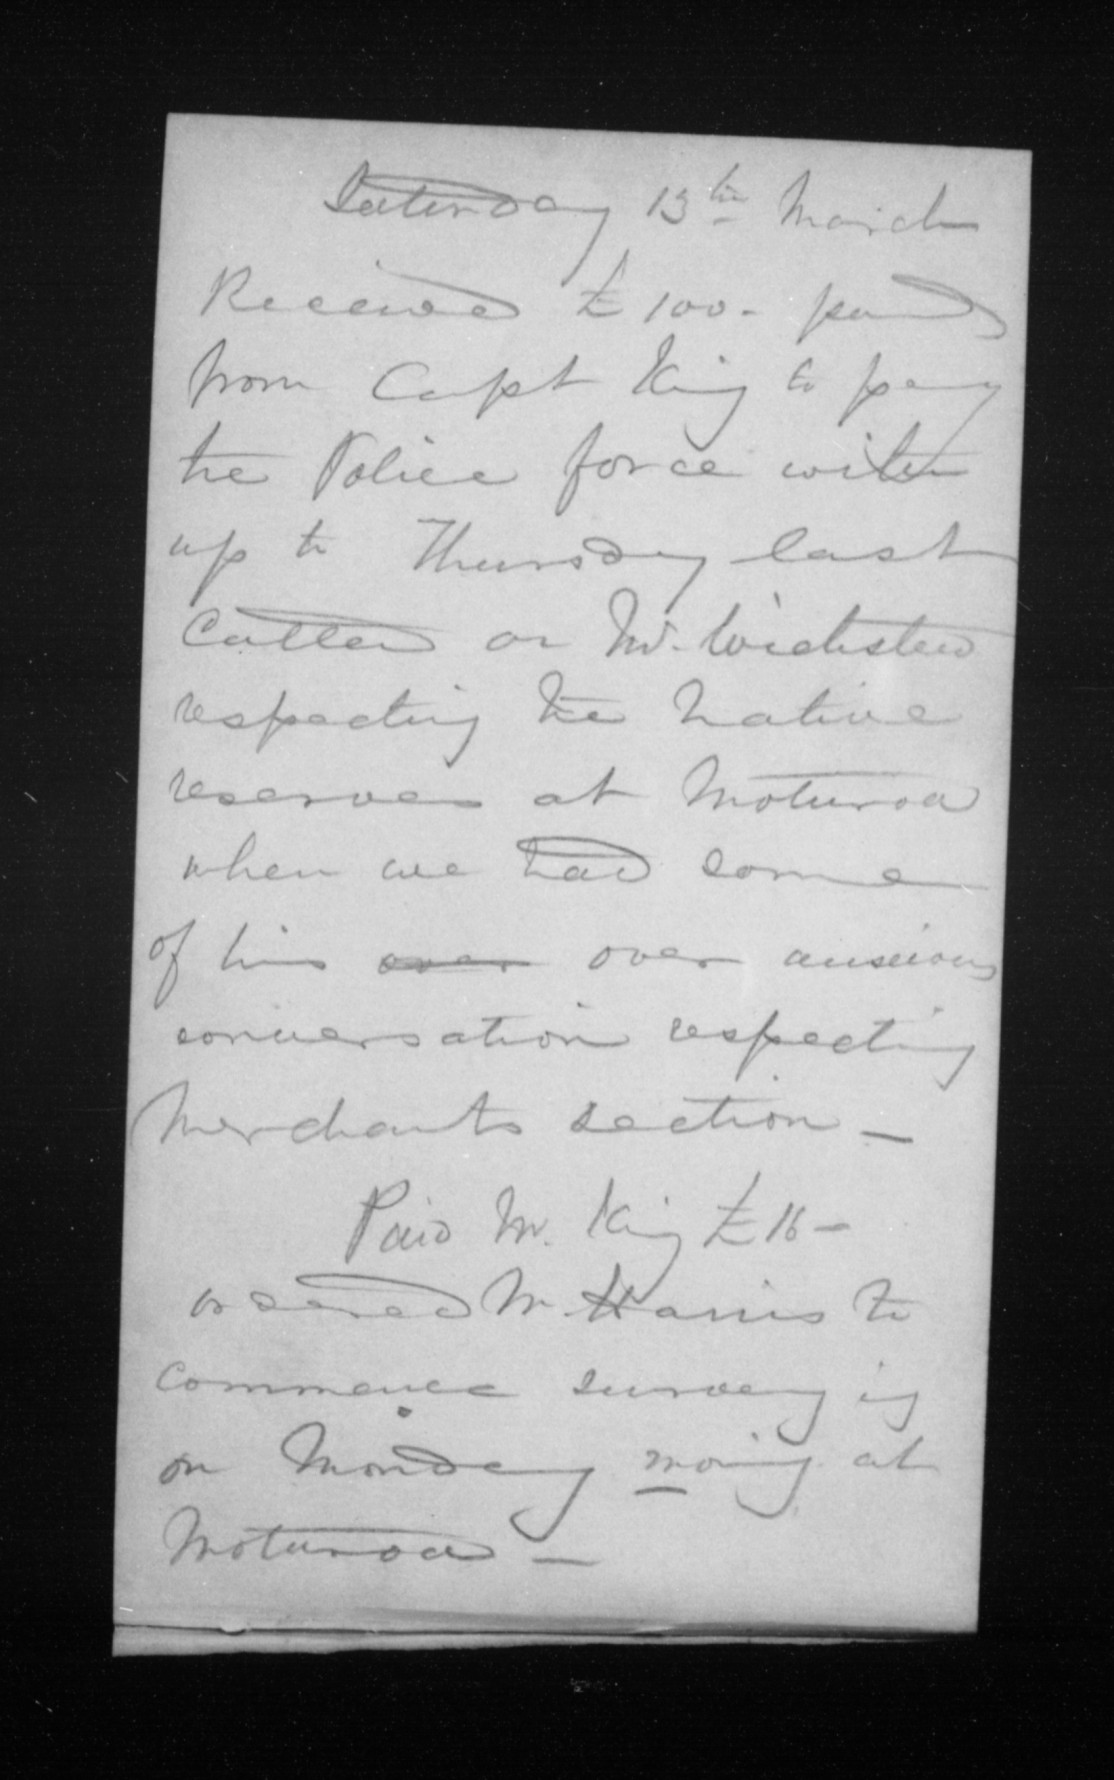 Saturday 13th March
Received £100 - pound
from Capt King to pay
the Police force with
up to Thursday last
Called on Mr. Wicksteed
respecting the Native
reserves at Moturoa
when we had some
of his over over anxious
conversation respecting
Merchants section -
Paid Mr. King £16 -
ordered Mr. Harris to
commence surveying
on Monday morng at
Moturoa -